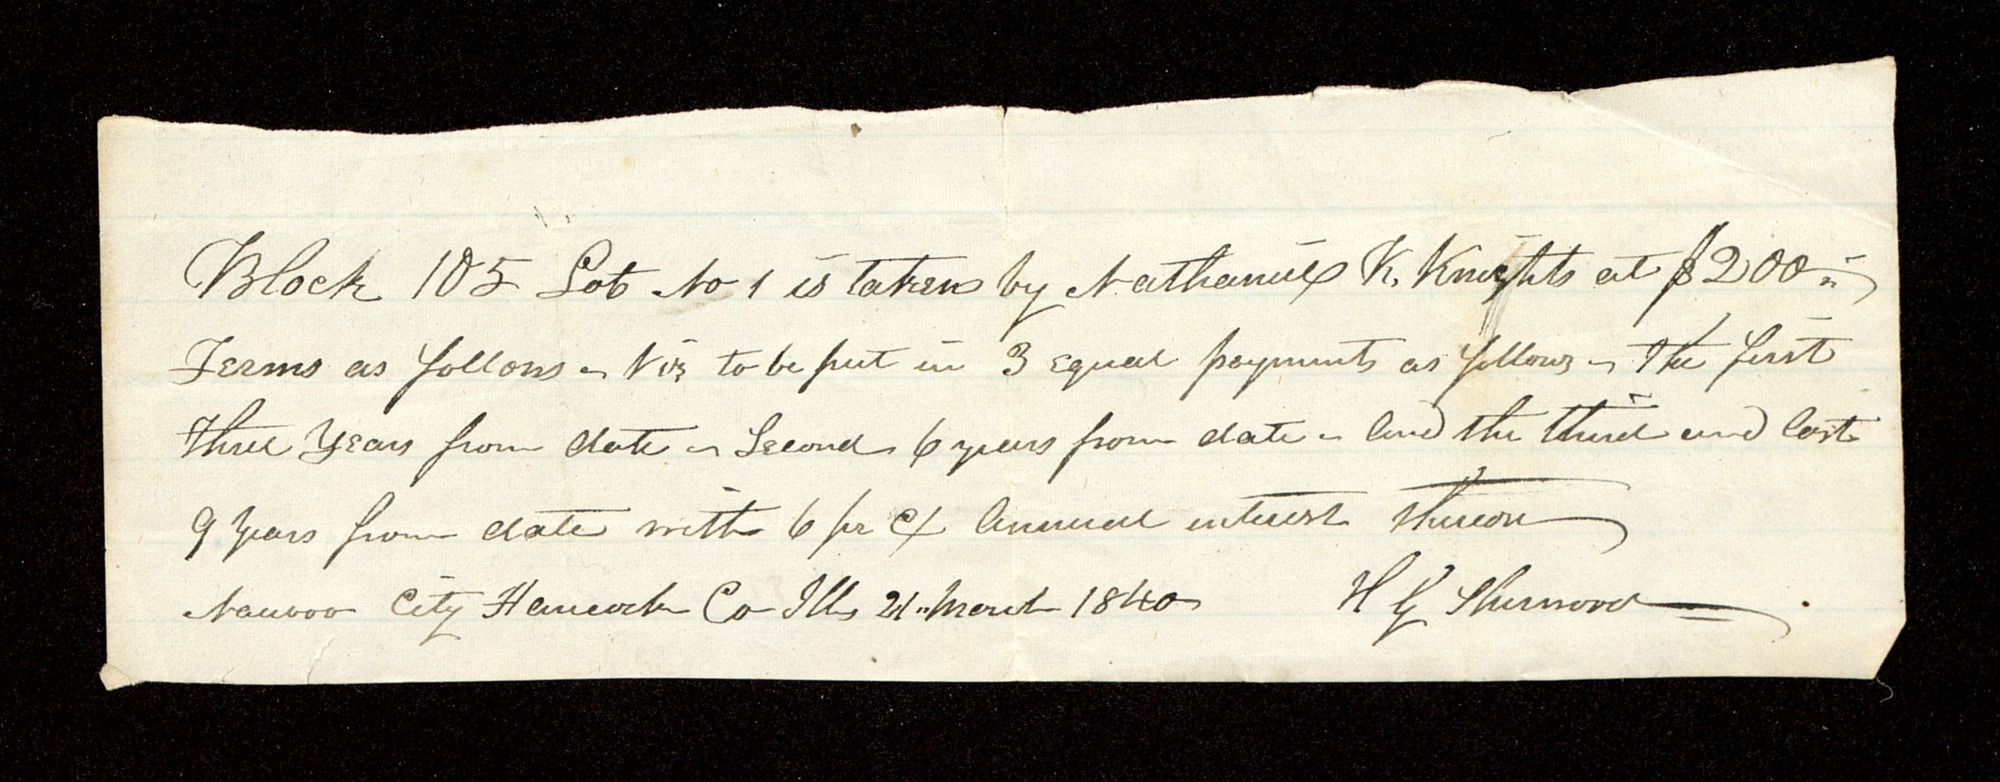 Block 105 Lot No 1 is taken by Nathaniel K. Knights at $200 "
Terms as follows - Viz to be put in 3 equal payments as follows - the first
three Years from date - Second 6 years from date - And the third and last
9 Years from date with 6 pr Ct Annual interest thereon
Nauvoo City Hancock Co Ills 21" March 1840 H G Sherwood